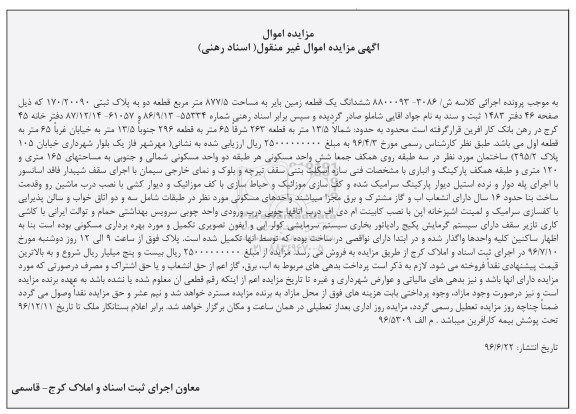 مزایده اموال
آگهی مزایده اموال غیر منقول( اسناد رهنی)
به موجب پرونده اجرائی کلاسه ش/ ۳۰۸۶- ۸۸۰۰۰۹۳ ششدانگ یک قطعه زمین بایر به مساحت ۸۷۷/۵ متر مربع قطعه دو به پلاک ثبتی ۱۷۰/۲۰۰۹۰ که ذیل
صفحه ۴۶ دفتر ۱۴۸۳ ثبت و سند به نام جواد آقایی شاملو صادر گردیده و سپس برابر اسناد رهنی شماره ۵۵۳۳۴- ۸۶/۹/۱۳ و ۶۱۰۵۷- ۸۷/۱۲/۱۴ دفتر خانه ۴۵
کرج در رهن بانک کار آفرین قرارگرفته است محدود به حدود: شمالاً ۱۳/۵ متر به قطعه ۲۶۳ شرقاً ۶۵ متر به قطعه ۲۹۶ جنوباً ۱۳/۵ متر به خیابان غرباً ۶۵ متر به
قطعه اول می باشد. طبق نظر کارشناس رسمی مورخ ۹۶/۴/۳ به مبلغ ۲۵۰۰۰۰۰۰۰۰۰ ریال ارزیابی شده به نشانی( مهرشهر فاز یک بلوار شهرداری خیابان ۱۰۵
پلاک ۲۹۵/۲) ساختمان مورد نظر در سه طبقه روی همکف جمعا شش واحد مسکونی هر طبقه دو واحد مسکونی شمالی و جنوبی به مساحتهای ۱۶۵ متری و
۱۲۰ متری و طبقه همکف پارکینگ و انباری با مشخصات فنی سازه اسکلت بتنی سقف تیرچه و بلوک و نمای خارجی سیمان با اجرای سقف شیبدار فاقد آسانسور
با اجرای پله دوار و نرده استیل دیوار پارکینگ سرامیک شده و کف سازی موزائیک و حیاط سازی با کف موزائیک و دیوار کشی با نصب درب ماشین رو وقدمت
ساخت بنا حدود ۱۶ سال دارای انشعاب آب و گاز مشترک و برق مجزا میباشند واحدهای مسکونی مورد نظر در طبقات شامل سه و دو اتاق خواب و سالن پذیرایی
با کفسازی سرامیک و لمینت آشپزخانه اپن با نصب کابینت ام دی اف درب اتاقها چوبی درب ورودی واحد چوبی سرویس بهداشتی حمام و توالت ایرانی با کاشی
کاری تازیر سقف دارای سیستم گرمایش پکیج رادیاتور بخاری سیستم سرمایشی کولر آبی و آیفون تصویری تکمیل و مورد بهره برداری مسکونی بوده است بنا به
اظهار ساکنین کلیه واحدها واگذار شده و در ابتدا دارای نواقصی در ساخت بوده که توسط آنها تکمیل شده است. پلاک فوق از ساعت ۹ الی ۱۲ روز دوشنبه مورخ
۹۶/۷/۱۰ در اجرای ثبت اسناد و املاک کرج از طریق مزایده به فروش می رسد. مزایده از مبلغ ۲۵۰۰۰۰۰۰۰۰۰ ریال بیست و پنج میلیار ریال شروع و به بالاترین
قیمت پیشنهادی نقداً فروخته می شود. لازم به ذکر است پرداخت بدهی های مربوط به آب، برق، گاز اعم از حق انشعاب و یا حق اشتراک و مصرف درصورتی که مورد
مزایده دارای آنها باشد و نیز بدهی های مالیاتی و عوارض شهرداری و غیره تا تاریخ مزایده اعم از اینکه رقم قطعی آن معلوم شده یا نشده باشد به عهده برنده مزایده
است و نیز درصورت وجود مازاد، وجوه پرداختی بابت هزینه های فوق از محل مازاد به برنده مزایده مسترد خواهد شد و نیم عشر و حق مزایده نقداً وصول می گردد
ضمناً چنانچه روز مزایده تعطیل رسمی گردد، مزایده روز اداری بعداز تعطیلی در همان ساعت و مکان برگزار خواهد شد. برابر اعلام بستانکار ملک تا تاریخ ۹۶/۱۲/۱۱
تحت پوشش بیمه کارآفرین میباشد . م الف ۹۶/۵۳۰۹
تاریخ انتشار: ۹۶/۶/۲۲
معاون اجرای ثبت اسناد و املاک کرج- قاسمی